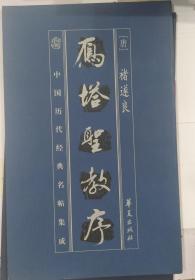 [唐] 褚遂良
雁塔聖教序
中国历代经典名帖集成
华夏出版社